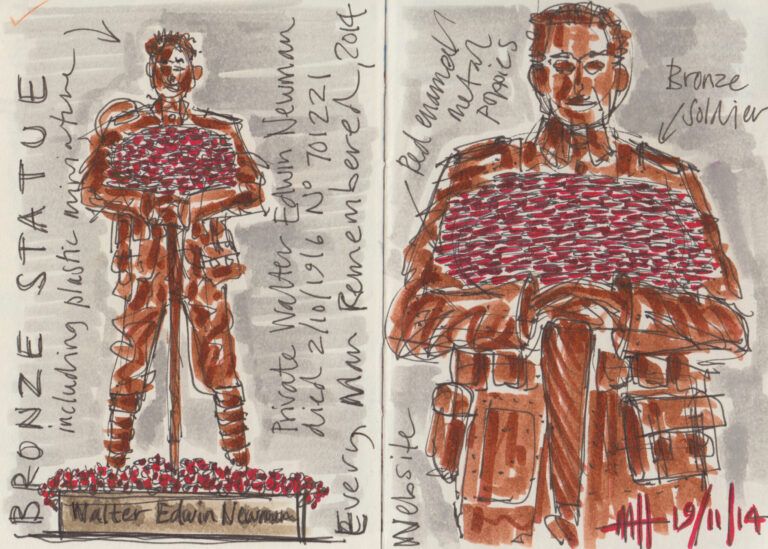 BRONZE STATUE
including plastic miniature
Private Walter Edwin Newman
died 2/10/1916 No 701221
Every Man Remembered, 2014
Walter Edwin Newman
Red enamel
metal
poppies
Bronze
Soldier
Website
MH 19/11/14